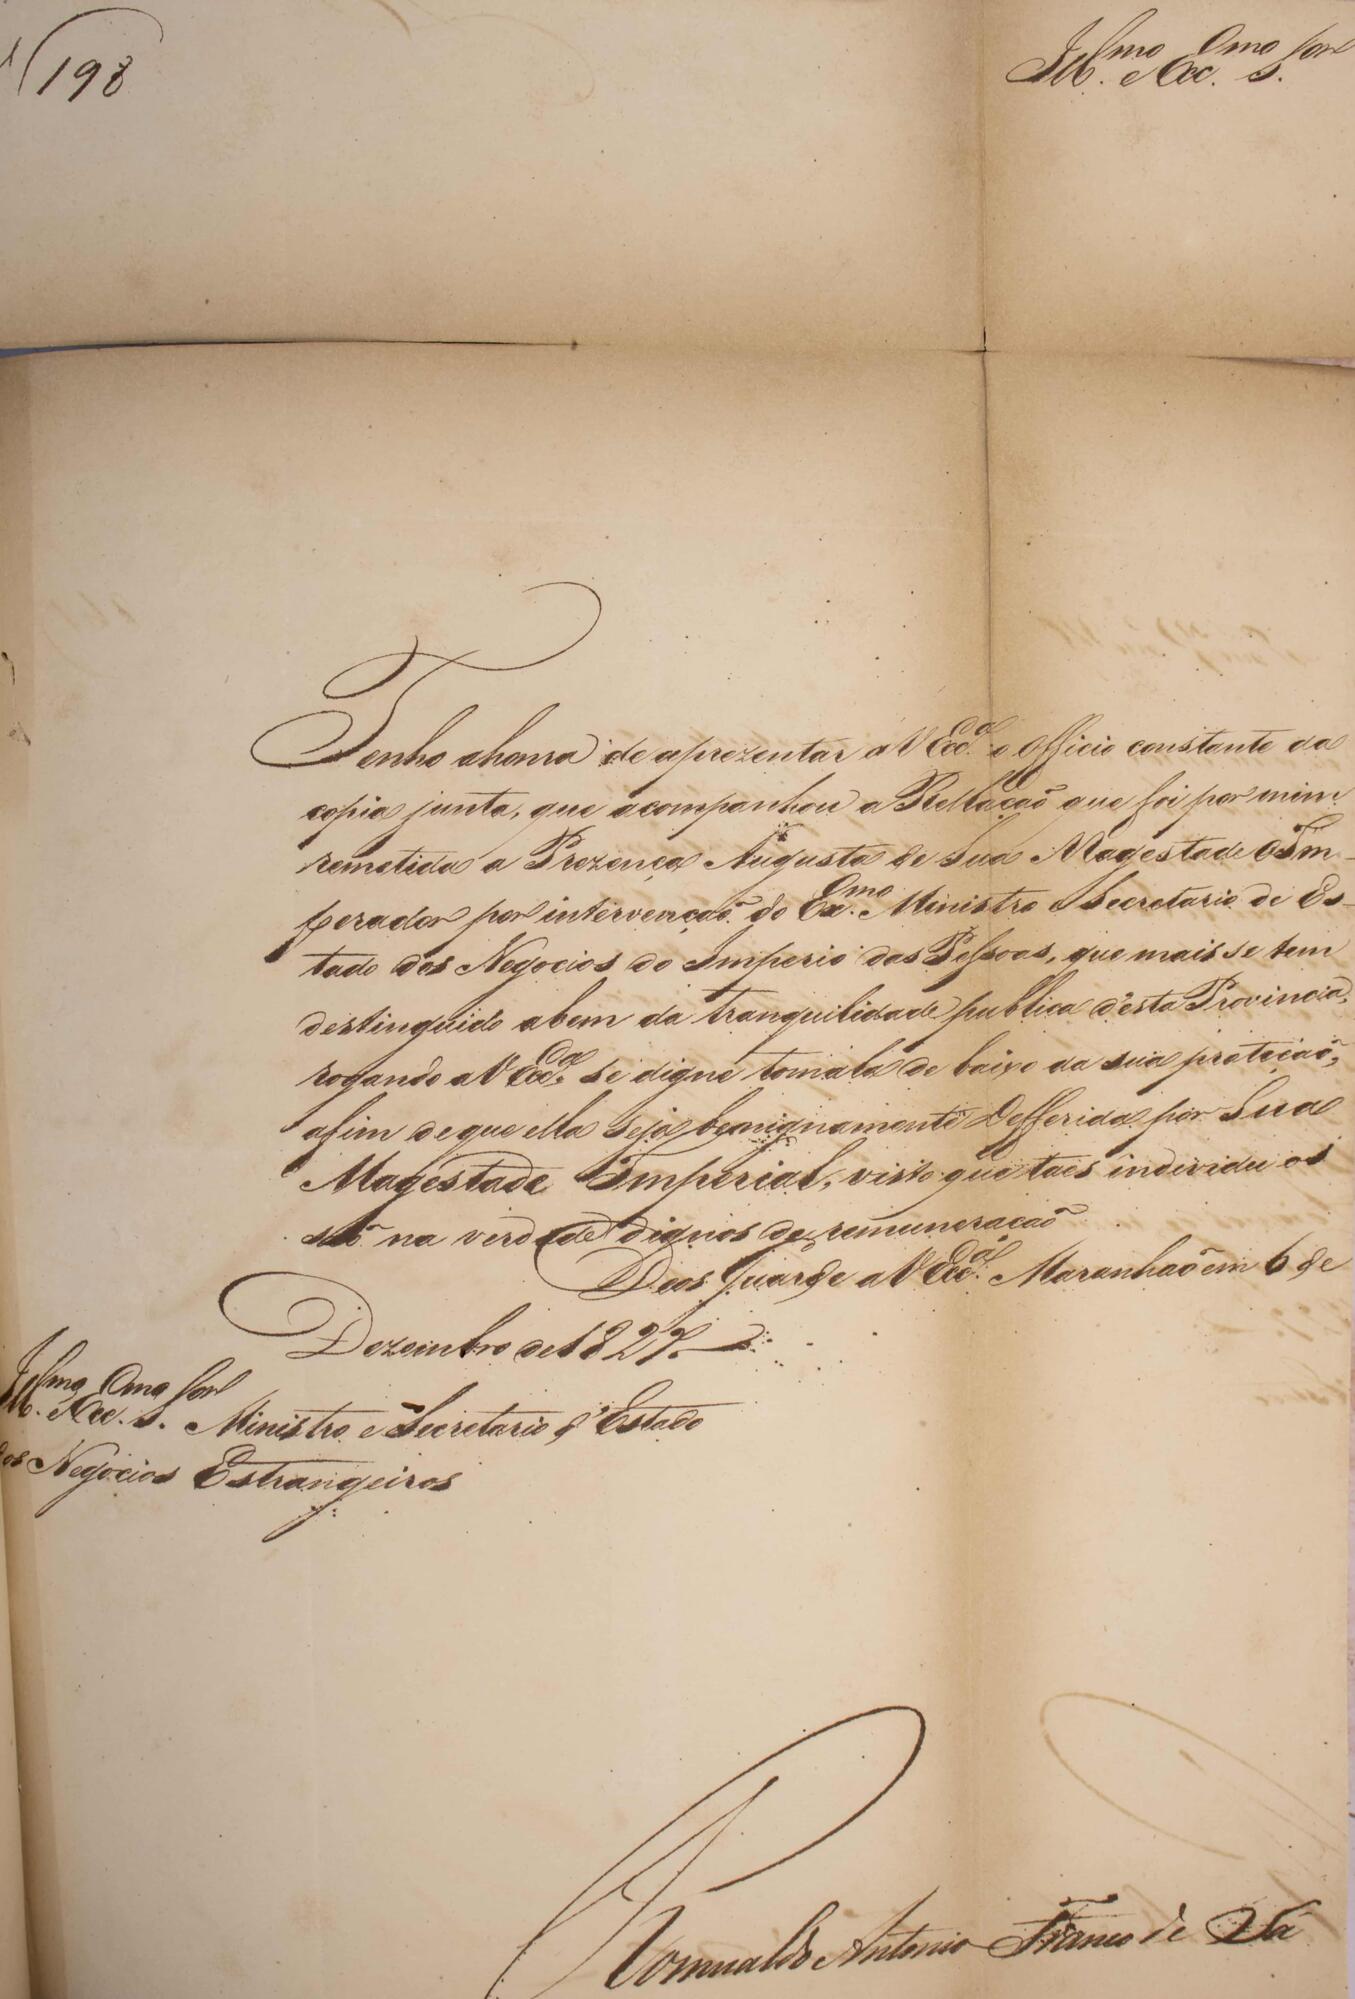 198
Ill.mo e Exc.mo Sor
Tenho a honra de aprezentar a V Exc.a o Officio constante da
copia junta, que acompanhou a Rellação que foi por mim
remetida a Prezença Augusta de Sua Magestade O Im-
perador por intervenção do Ex.mo Ministro e Secretario de Es-
tado dos Negocios do Imperio das Pessoas, que mais se tem
destinguido a bem da tranquilidade publica d'esta Provincia,
rogando a V Exc.a se digne tomala de baixo da sua proteição,
afim de que ella seja benignamente Defferida por Sua
Magestade Imperial, visto que taes individuos
são na verdade dignos de remuneração
Deos Guarde a V Exc.a Maranhão em 6 de
Dezembro de 1827.
Ill.mo e Exc.mo Sor Ministro e Secretario d'Estado
dos Negocios Estrangeiros
Romualdo Antonio Franco de Sá